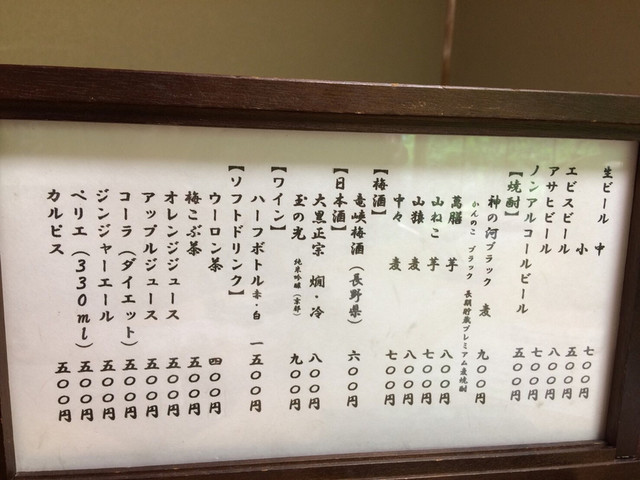 生ビール 中 七〇〇円
小 五〇〇円
エビスビール 八〇〇円
アサヒビール 七〇〇円
ノンアルコールビール 五〇〇円
【焼酎】
神の河ブラック 麦 九〇〇円
かんのこ ブラック 長期貯蔵プレミアム麦焼酎
萬膳 芋 八〇〇円
山ねこ 芋 七〇〇円
山猿 麦 八〇〇円
中々 麦 七〇〇円
【梅酒】
竜峡梅酒(長野県) 六〇〇円
【日本酒】
大黒正宗 燗・冷 八〇〇円
玉の光 純米吟醸(京都) 九〇〇円
【ワイン】
ハーフボトル赤・白 一五〇〇円
【ソフトドリンク】
ウーロン茶 四〇〇円
梅こぶ茶 五〇〇円
オレンジジュース 五〇〇円
アップルジュース 五〇〇円
コーラ(ダイエット) 五〇〇円
ジンジャーエール 五〇〇円
ペリエ(330ml) 五〇〇円
カルピス 五〇〇円